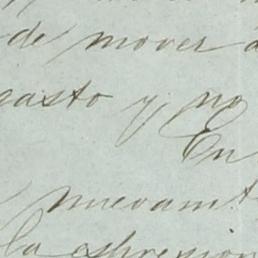 de mover
gasto y no
En
nuevamt
la espresion